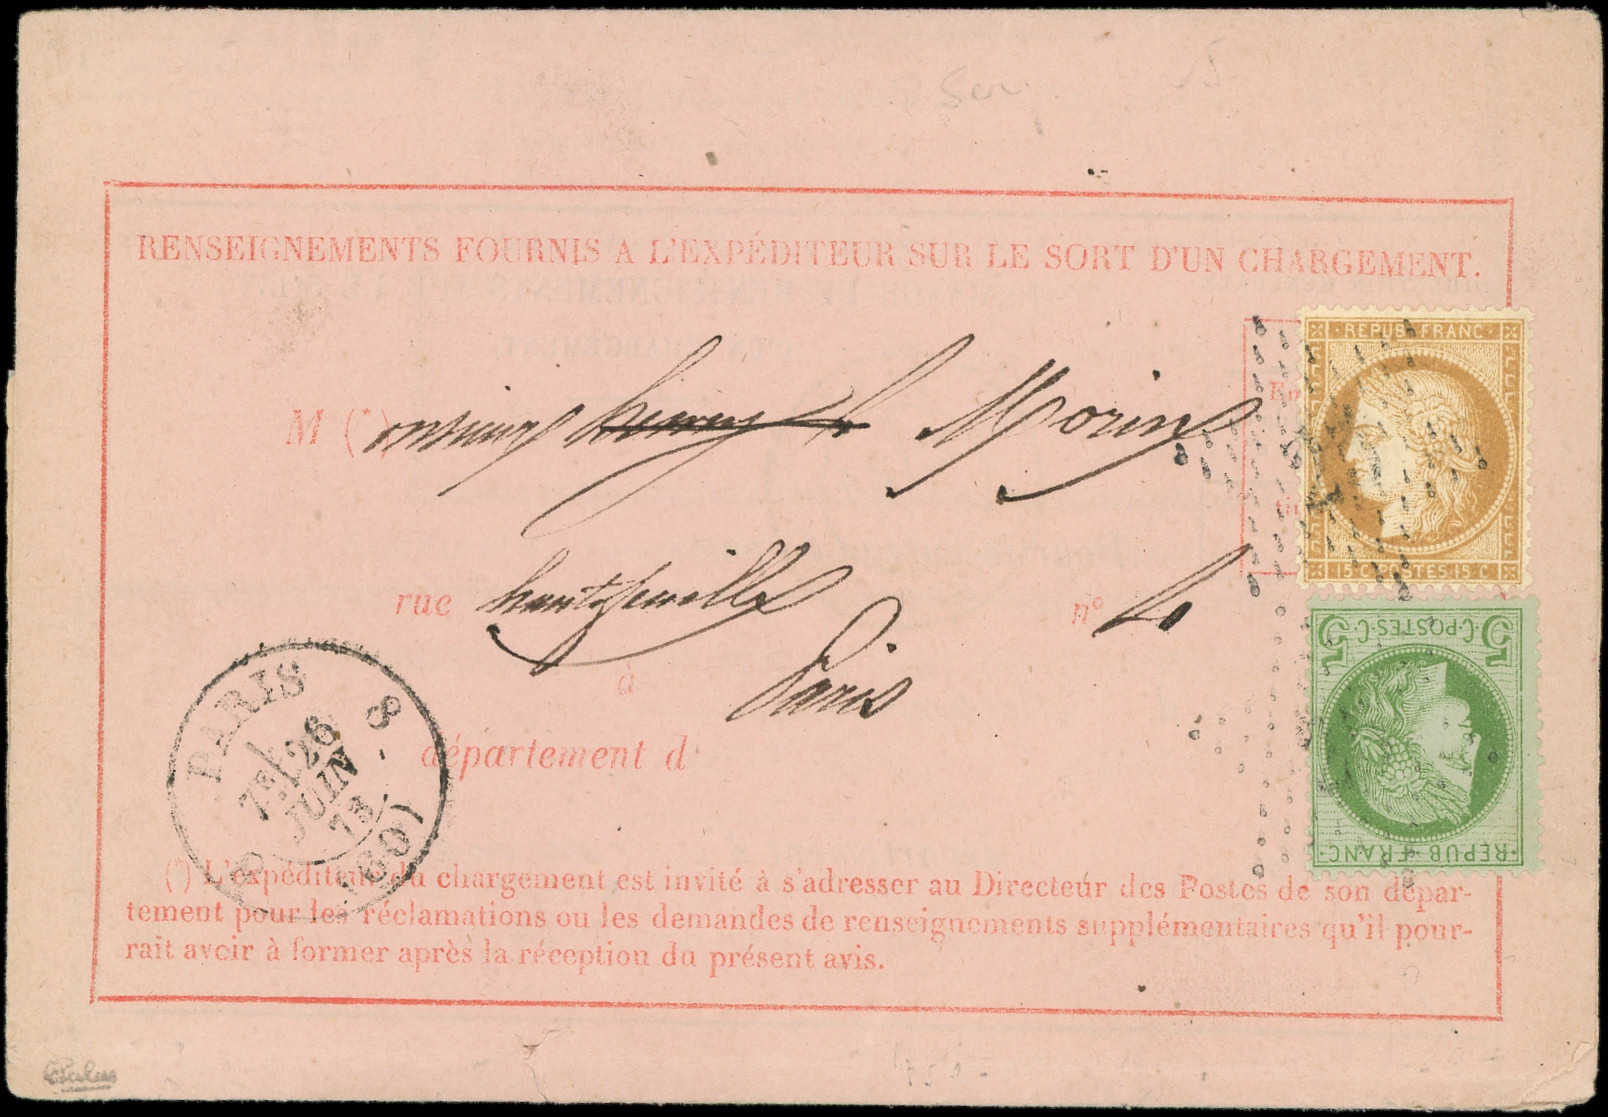 RENSEIGNEMENTS FOURNIS A L'EXPÉDITEUR SUR LE SORT D'UN CHARGEMENT.
REPUB·FRANC·
M (*) onsieur henry L Morin
15 C·POSTES·15 C
rue hautefeuille n° 4
5 C·POSTES·C 5
à Paris
département d
·REPUB·FRANC·
PARIS 8
7E 26
JUIN
73
(60)
(*) L'expéditeur du chargement est invité à s'adresser au Directeur des Postes de son dépar-
tement pour les réclamations ou les demandes de renseignements supplémentaires qu'il pour-
rait avoir à former après la réception du présent avis.